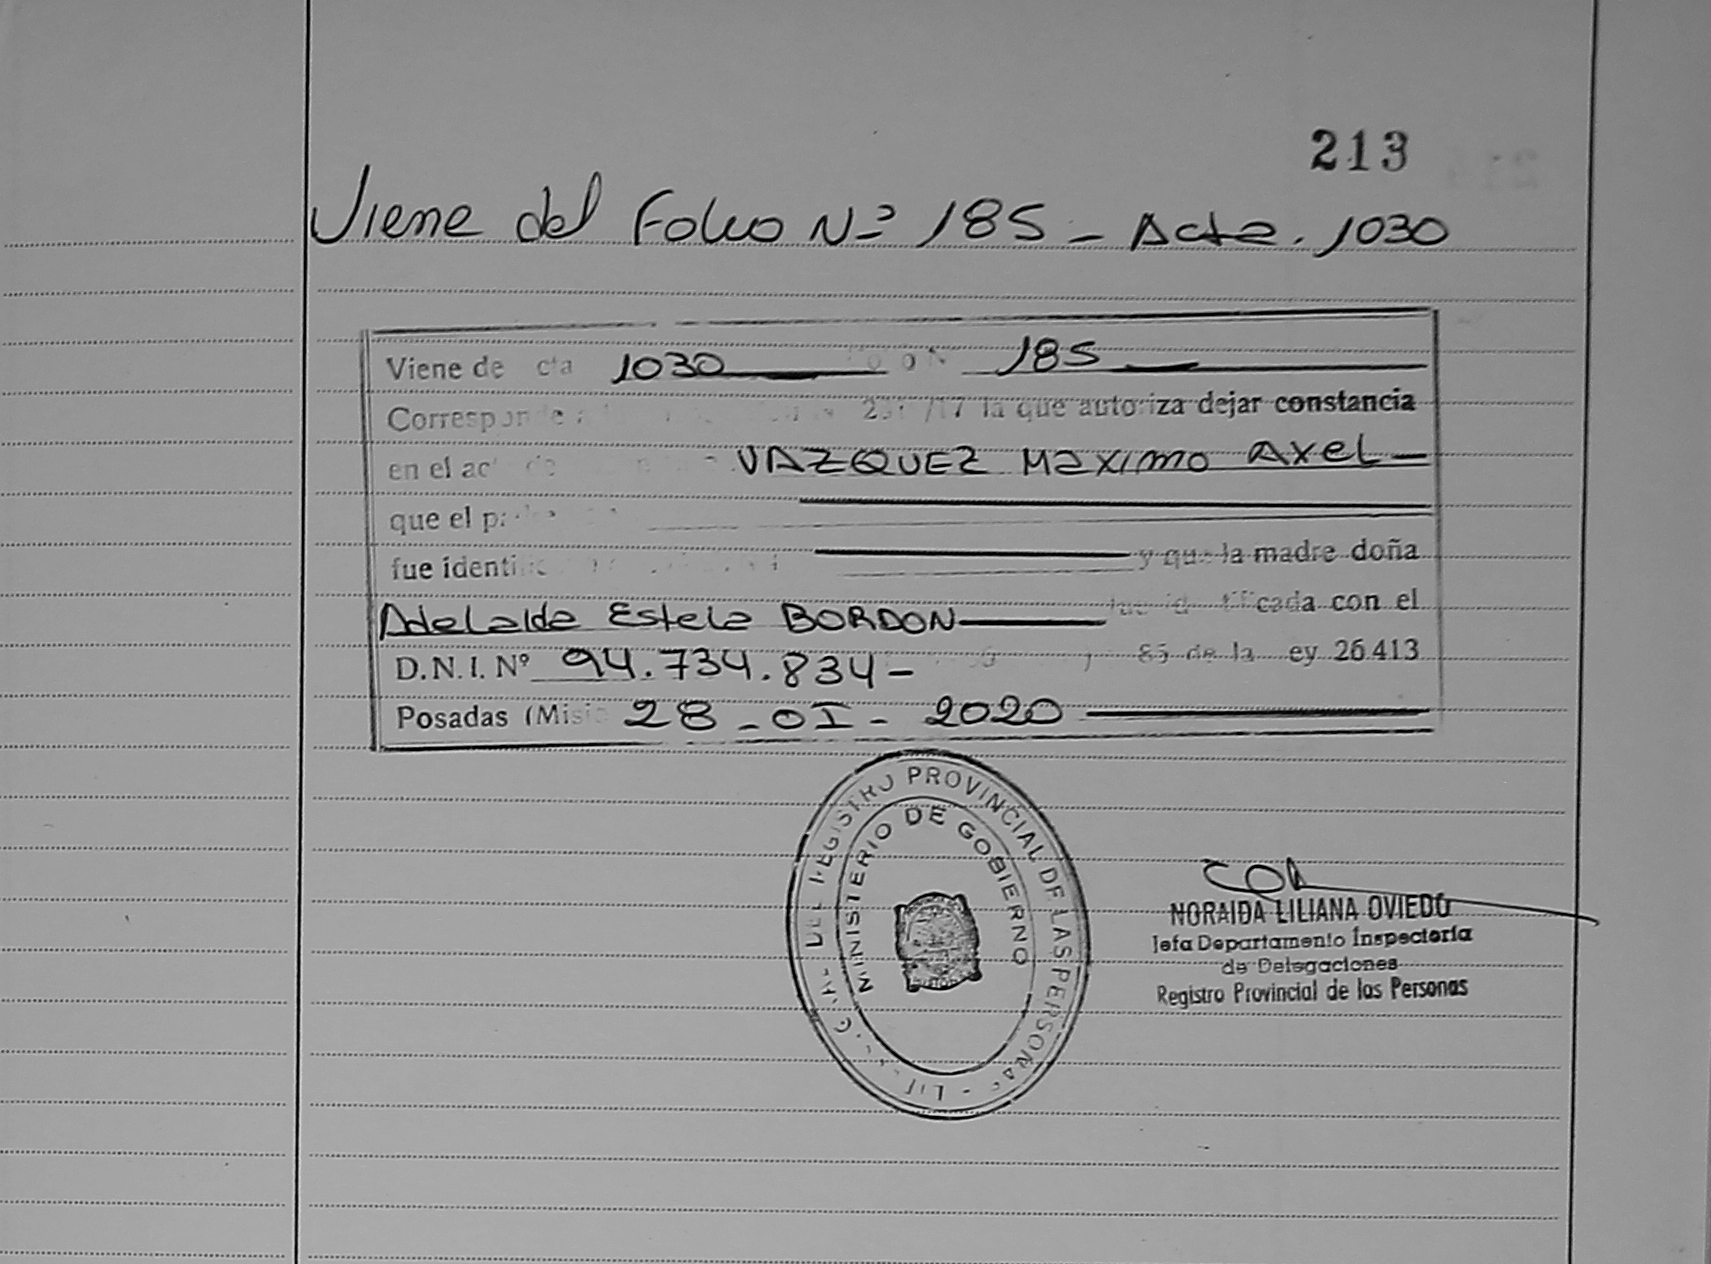 213
Viene del Folio Nº 185 - Acta. 1030
Viene de cta 1030 185
Corresponde /17 la que autoriza dejar constancia
en el VAZQUEZ Maximo Axel
que el
fue y que la madre doña
Adelaida Estela BORDON cada con el
D.N.I. Nº 94.734.834- 85 de la ey 26.413
Posadas (Misi 28-01-2020
REGISTRO PROVINCIAL DE LAS PERSONAS
MINISTERIO DE GOBIERNO
NORAIDA LILIANA OVIEDO
Jefa Departamento Inspectoría
de Delegaciones
Registro Provincial de las Personas